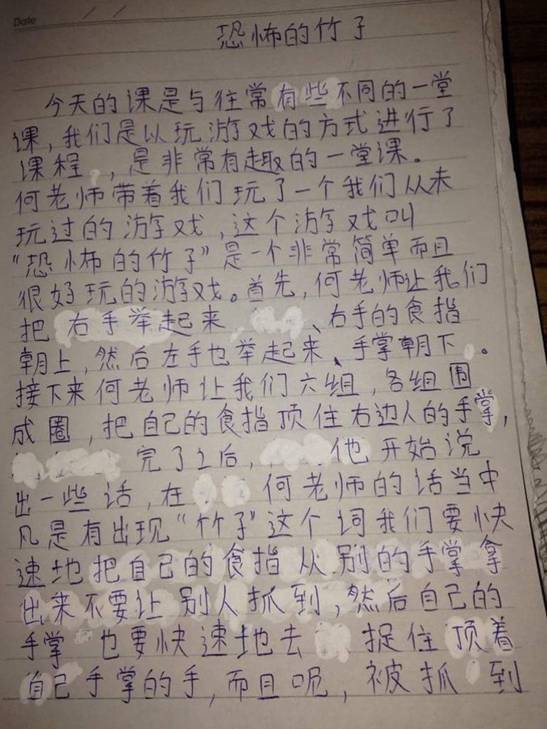 Date
恐怖的竹子
今天的课是与往常有些不同的一堂
课,我们是以玩游戏的方式进行了
课程,是非常有趣的一堂课。
何老师带着我们玩了一个我们从未
玩过的游戏,这个游戏叫
“恐怖的竹子”是一个非常简单而且
很好玩的游戏。首先,何老师让我们
把右手举起来、右手的食指
朝上,然后左手也举起来、手掌朝下。
接下来何老师让我们六组,各组围
成圈,把自己的食指顶住右边人的手掌,
完了之后,他开始说
出一些话,在何老师的话当中
凡是有出现“竹子”这个词我们要快
速地把自己的食指从别的手掌拿
出来不要让别人抓到,然后自己的
手掌也要快速地去捉住顶着
自己手掌的手,而且呢,被抓到